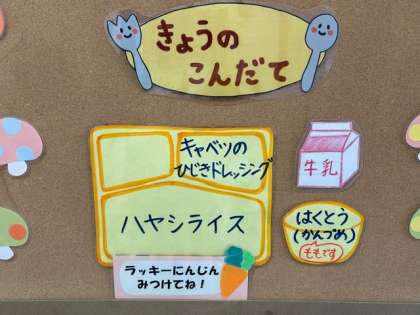 きょうの
こんだて
キャベツの
ひじきドレッシング
牛乳
ハヤシライス
はくとう
(かんづめ)
ももです
ラッキーにんじん
みつけてね!